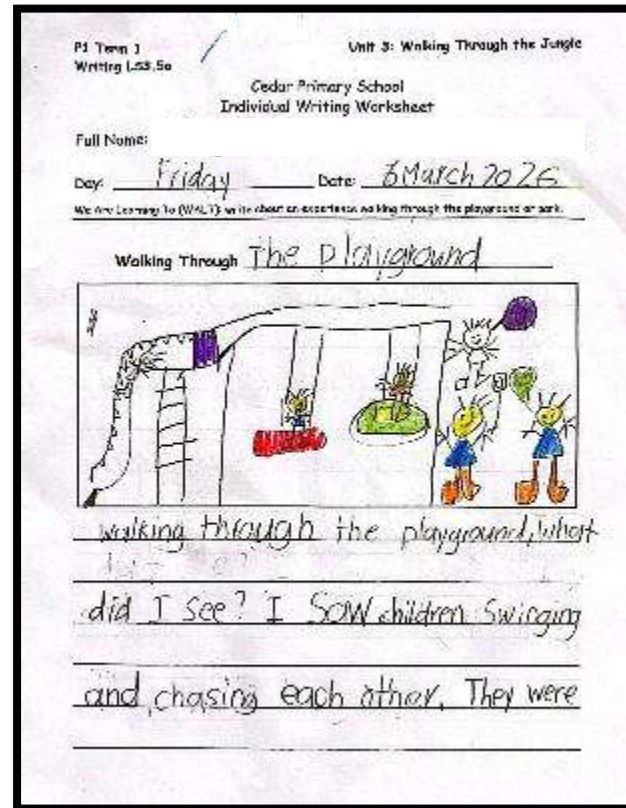 P1 Term 1
Unit 3: Walking Through the Jungle
Writing LS3.5a
Cedar Primary School
Individual Writing Worksheet
Full Name:
Day: Friday Date: 6 March 2026
We Are Learning To (WALT): write about an experience walking through the playground or park.
Walking Through The Playground
walking through the playground, what
did I see? I saw children swinging
and chasing each other. They were